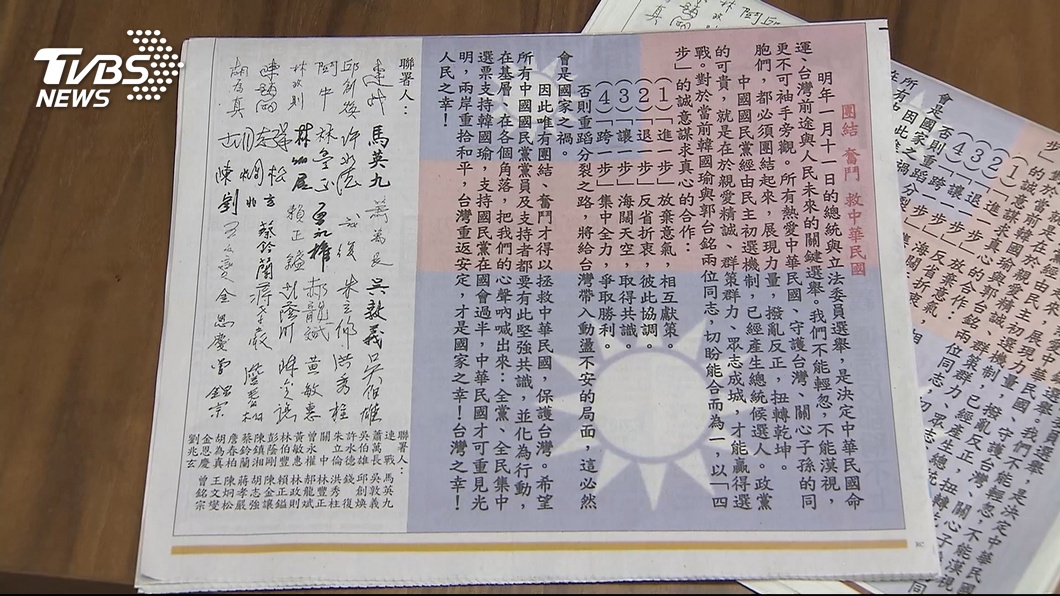 TVBS
NEWS
團結 奮鬥 救中華民國
明年一月十一日的總統與立法委員選舉,是決定中華民國命
運、台灣前途與人民未來的關鍵選舉。我們不能輕忽,不能漠視,
更不可袖手旁觀。所有熱愛中華民國、守護台灣、關心子孫的同
胞們,都必須團結起來,展現力量,撥亂反正,扭轉乾坤。
中國國民黨經由民主初選機制,已經產生總統候選人。政黨
的可貴,就是在於親愛精誠、群策群力、眾志成城,才能贏得選
戰。對於當前韓國瑜與郭台銘兩位同志,切盼能合而為一,以「四
步」的誠意謀求真心的合作:
(1)「進一步」放棄意氣,相互獻策。
(2)「退一步」反省折衷,彼此協調。
(3)「讓一步」海闊天空,取得共識。
(4)「跨一步」集中全力,爭取勝利。
否則重蹈分裂之路,將給台灣帶入動盪不安的局面,這必然
會是國家之禍。
因此唯有團結、奮鬥才得以拯救中華民國,保護台灣。希望
所有中國國民黨黨員及支持者都要有此堅強共識,並化為行動,
在基層、在各個角落,把我們的心聲吶喊出來:全黨、全民集中
選票支持韓國瑜,支持國民黨在國會過半,中華民國才可重見光
明,兩岸重拾和平,台灣重返安定,才是國家之幸!台灣之幸!
人民之幸!
聯署人:
連戰 馬英九 蕭萬長 吳敦義 吳伯雄
聯署人:
連戰 馬英九
蕭萬長 吳敦義
吳伯雄 邱創煥
許水德 錢復
朱立倫 洪秀柱
關中 林豐正
曾永權 郝龍斌
黃敏惠 林政則
林伯豐 賴正鎰
彭蔭剛 陳金讓
陳鎮湘 胡志強
蔡鈴蘭 蔣孝嚴
詹春柏 陳炯松
胡為真 王文燮
金恩慶 曾銘宗
劉兆玄